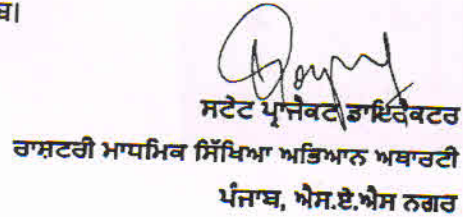 ਸਟੇਟ ਪ੍ਰਾਜੈਕਟ ਡਾਇਰੈਕਟਰ
ਰਾਸ਼ਟਰੀ ਮਾਧਮਿਕ ਸਿੱਖਿਆ ਅਭਿਆਨ ਅਥਾਰਟੀ
ਪੰਜਾਬ, ਐਸ.ਏ.ਐਸ ਨਗਰ